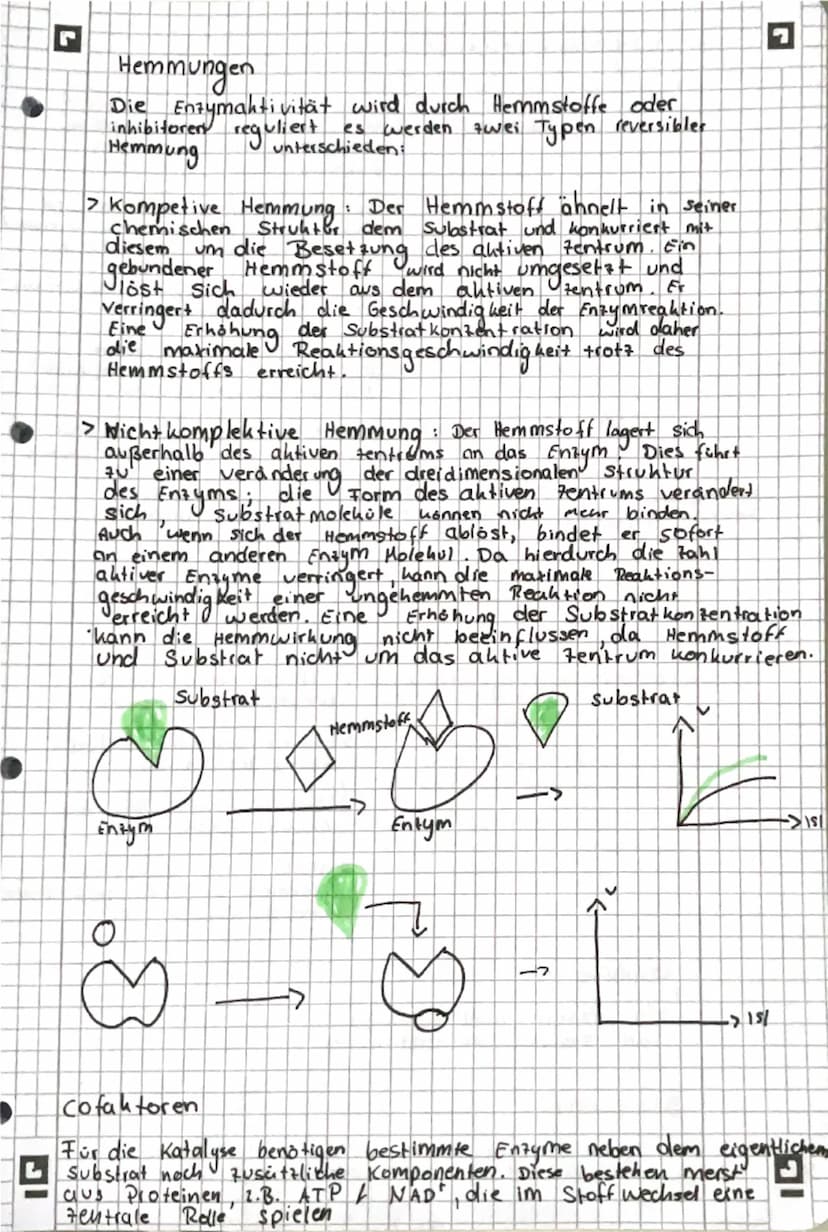 Hemmungen
Die Enzymaktivität wird durch Hemmstoffe oder
inhibitoren reguliert es werden zwei Typen reversibler
Hemmung unterschieden:
> Kompetive Hemmung: Der Hemmstoff ähnelt in seiner
chemischen Struktur dem Substrat und konkurriert mit
diesem um die Besetzung des aktiven Zentrum. Ein
gebundener Hemmstoff wird nicht umgesetzt und
löst sich wieder aus dem aktiven Zentrum. Er
verringert dadurch die Geschwindigkeit der Enzymreaktion.
Eine Erhöhung der Substratkonzentration wird daher
die maximale Reaktionsgeschwindigkeit trotz des
Hemmstoffs erreicht.
> Nichtkomplektive Hemmung: Der Hemmstoff lagert sich
außerhalb des aktiven Zentrums an das Enzym. Dies führt
zu einer veränderung der dreidimensionalen Struktur
des Enzyms; die Form des aktiven Zentrums verändert
sich, Substratmoleküle können nicht mehr binden.
Auch wenn sich der Hemmstoff ablöst, bindet er sofort
an einem anderen Enzym Molekül. Da hierdurch die Zahl
aktiver Enzyme verringert, kann die maximale Reaktions-
geschwindigkeit einer ungehemmten Reaktion nicht
erreicht werden. Eine Erhöhung der Substratkonzentration
kann die Hemmwirkung nicht beeinflussen, da Hemmstoff
und Substrat nicht um das aktive Zentrum konkurrieren.
Substrat
Hemmstoff
Substrat
v
Enzym
Enzym
|S|
v
|S|
Cofaktoren
Für die Katalyse benötigen bestimmte Enzyme neben dem eigentlichem
Substrat noch zusätzliche Komponenten. Diese bestehen meist
aus Proteinen, z.B. ATP / NAD⁺, die im Stoffwechsel eine
zentrale Rolle spielen